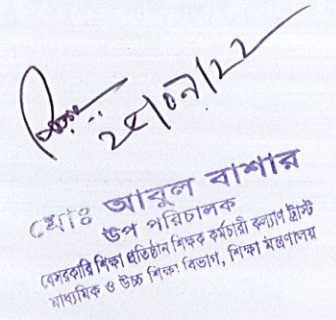 ২৫/০৭/২২
মোঃ আবুল বাশার
উপ পরিচালক
বেসরকারি শিক্ষা প্রতিষ্ঠান শিক্ষক কর্মচারী কল্যাণ ট্রাস্ট
মাধ্যমিক ও উচ্চ শিক্ষা বিভাগ, শিক্ষা মন্ত্রণালয়